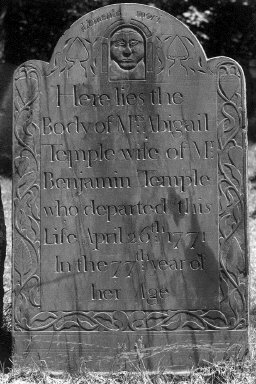 Memento mori
Here lies the
Body of Mrs Abigail
Temple wife of Mr
Benjamin Temple
who departed this
Life April 26th 1771
In the 77th year of
her Age